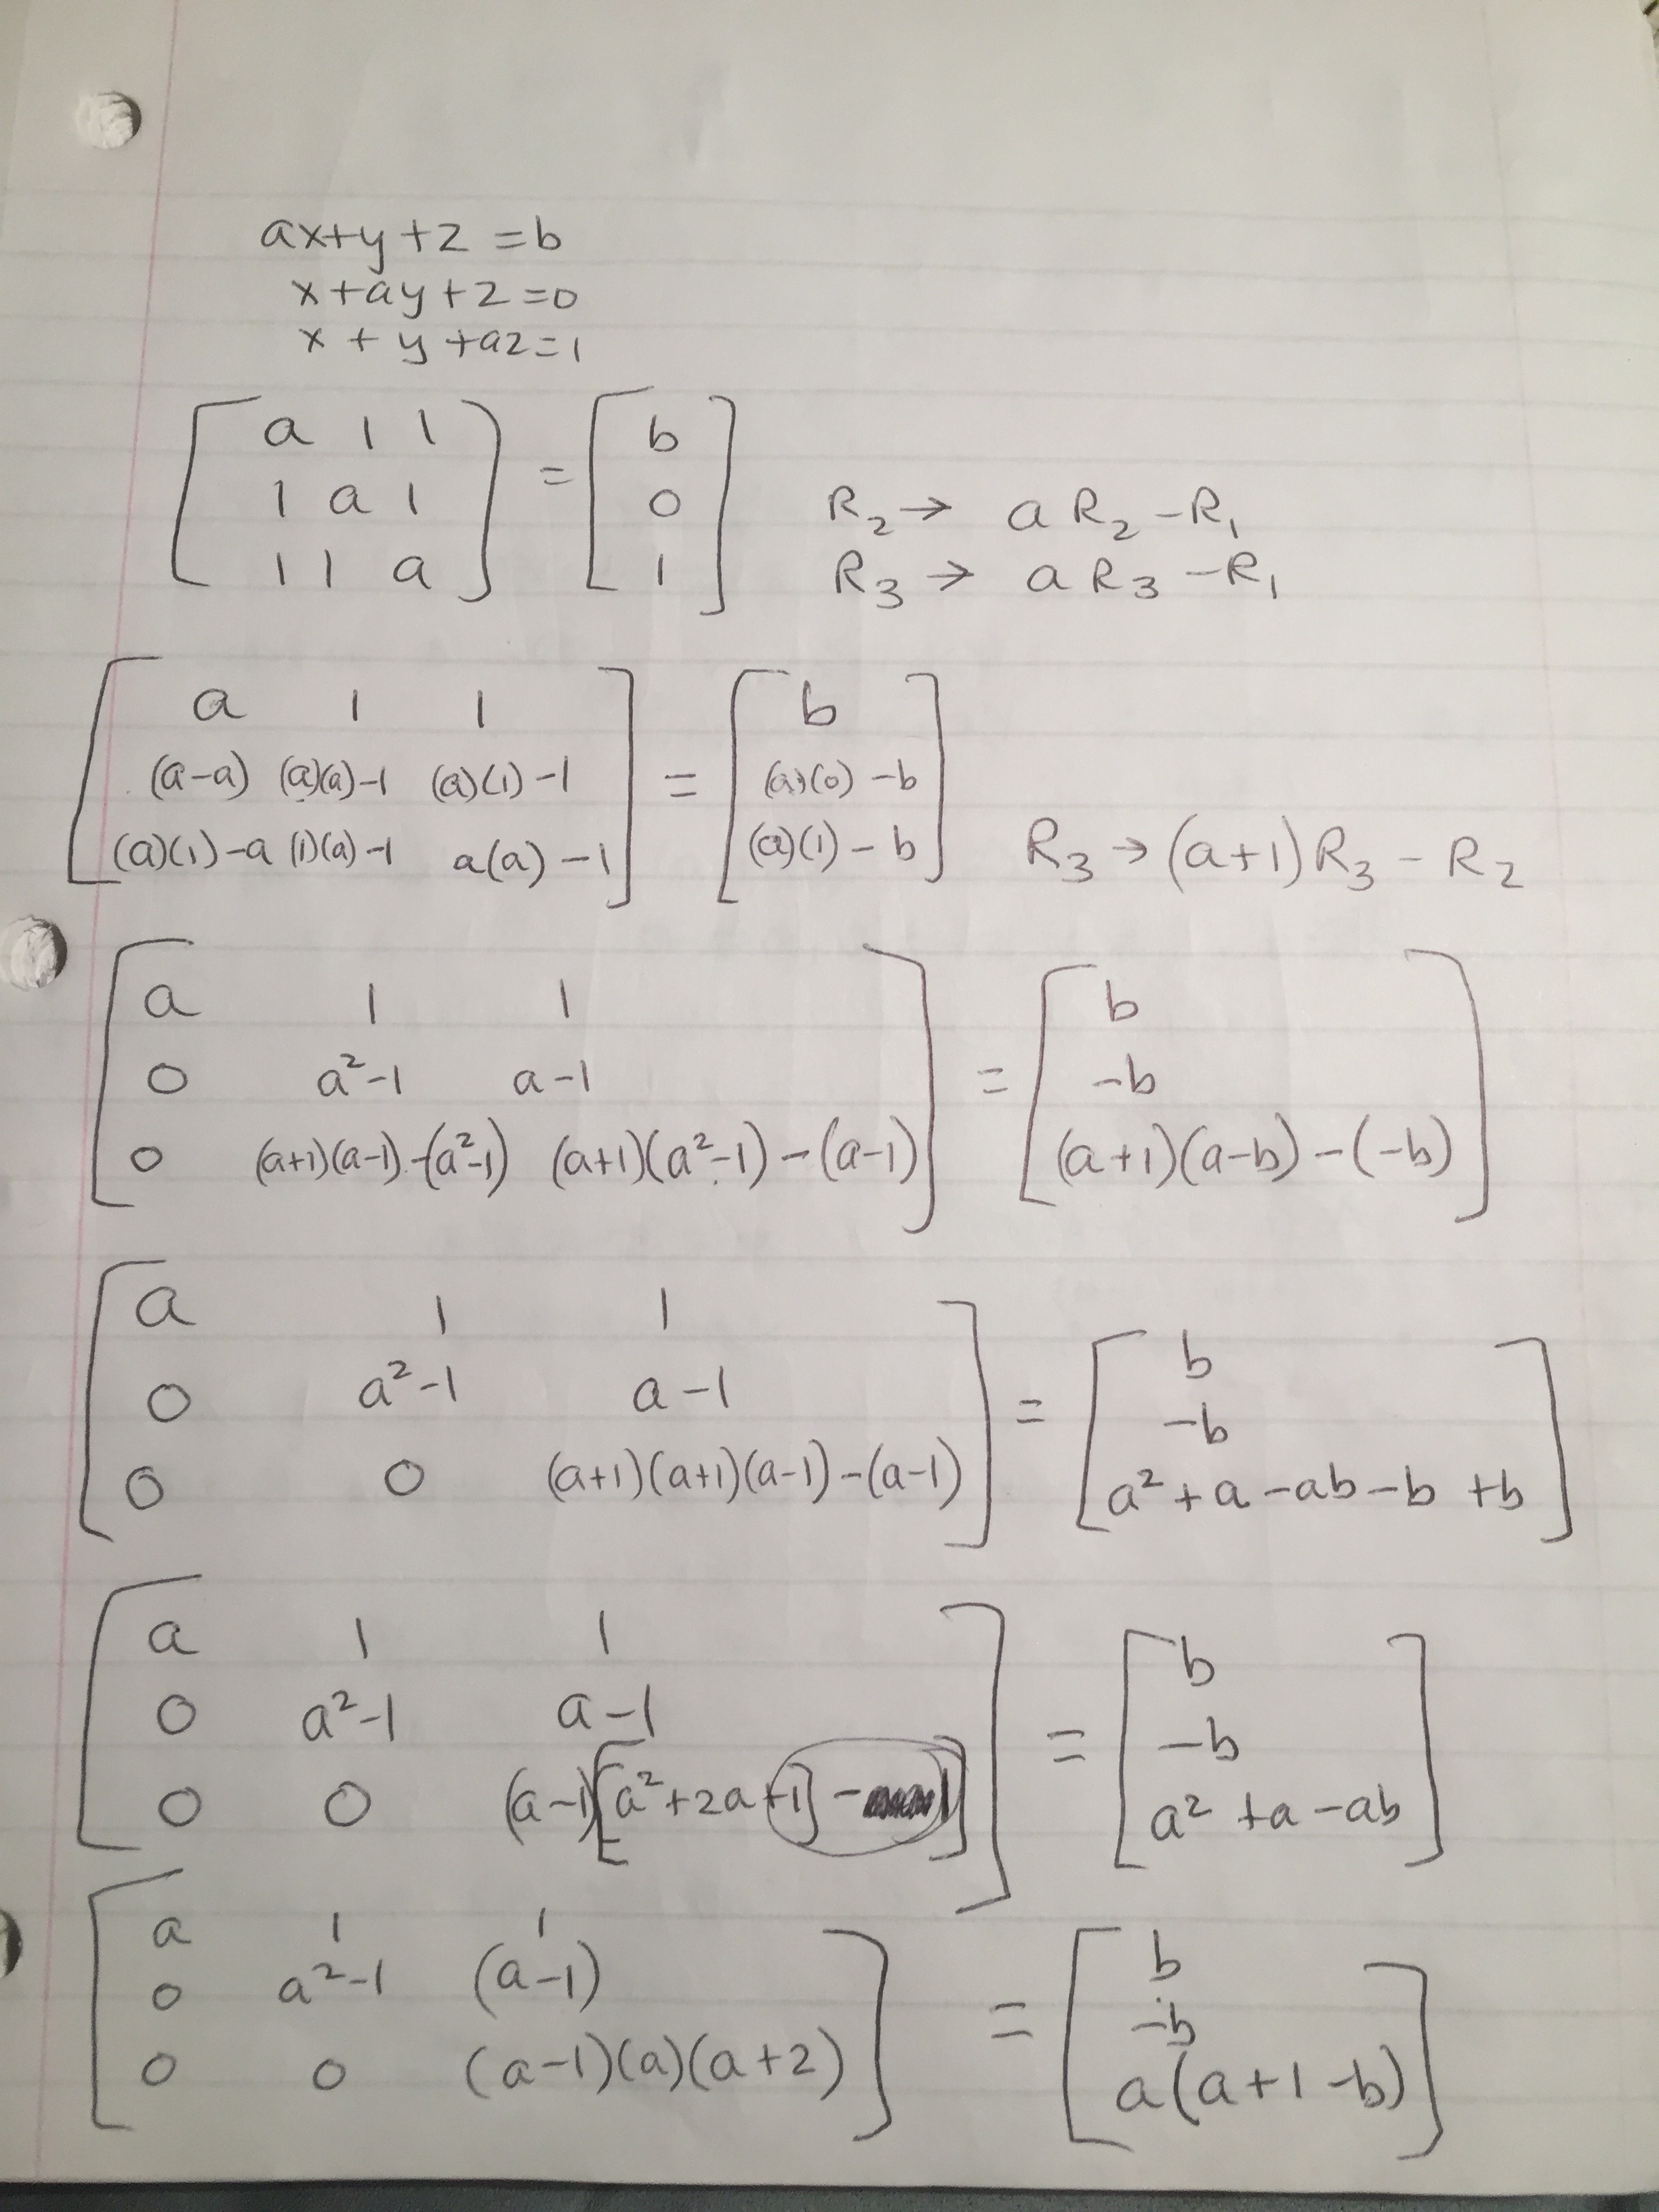 ax+y+z =b
x+ay+z=0
x+y+az=1
a 1 1 = b
1 a 1 0 R₂→ a R₂ -R₁
1 1 a 1 R₃ → a R₃ -R₁
a 1 1 b
(a-a) (a)(a)-1 (a)(1)-1 = (a)(0)-b
(a)(1)-a (1)(a)-1 a(a)-1 (a)(1)-b R₃→(a+1)R₃-R₂
a 1 1 b
0 a²-1 a-1 = -b
0 (a+1)(a-1)-(a²-1) (a+1)(a²-1)-(a-1) (a+1)(a-b)-(-b)
a 1 1 b
0 a²-1 a-1 = -b
0 0 (a+1)(a+1)(a-1)-(a-1) a²+a-ab-b+b
a 1 1 b
0 a²-1 a-1 = -b
0 0 (a-1)[a²+2a+1]-1] a²+a-ab
a 1 1 b
0 a²-1 (a-1) = -b
0 0 (a-1)(a)(a+2) a(a+1-b)